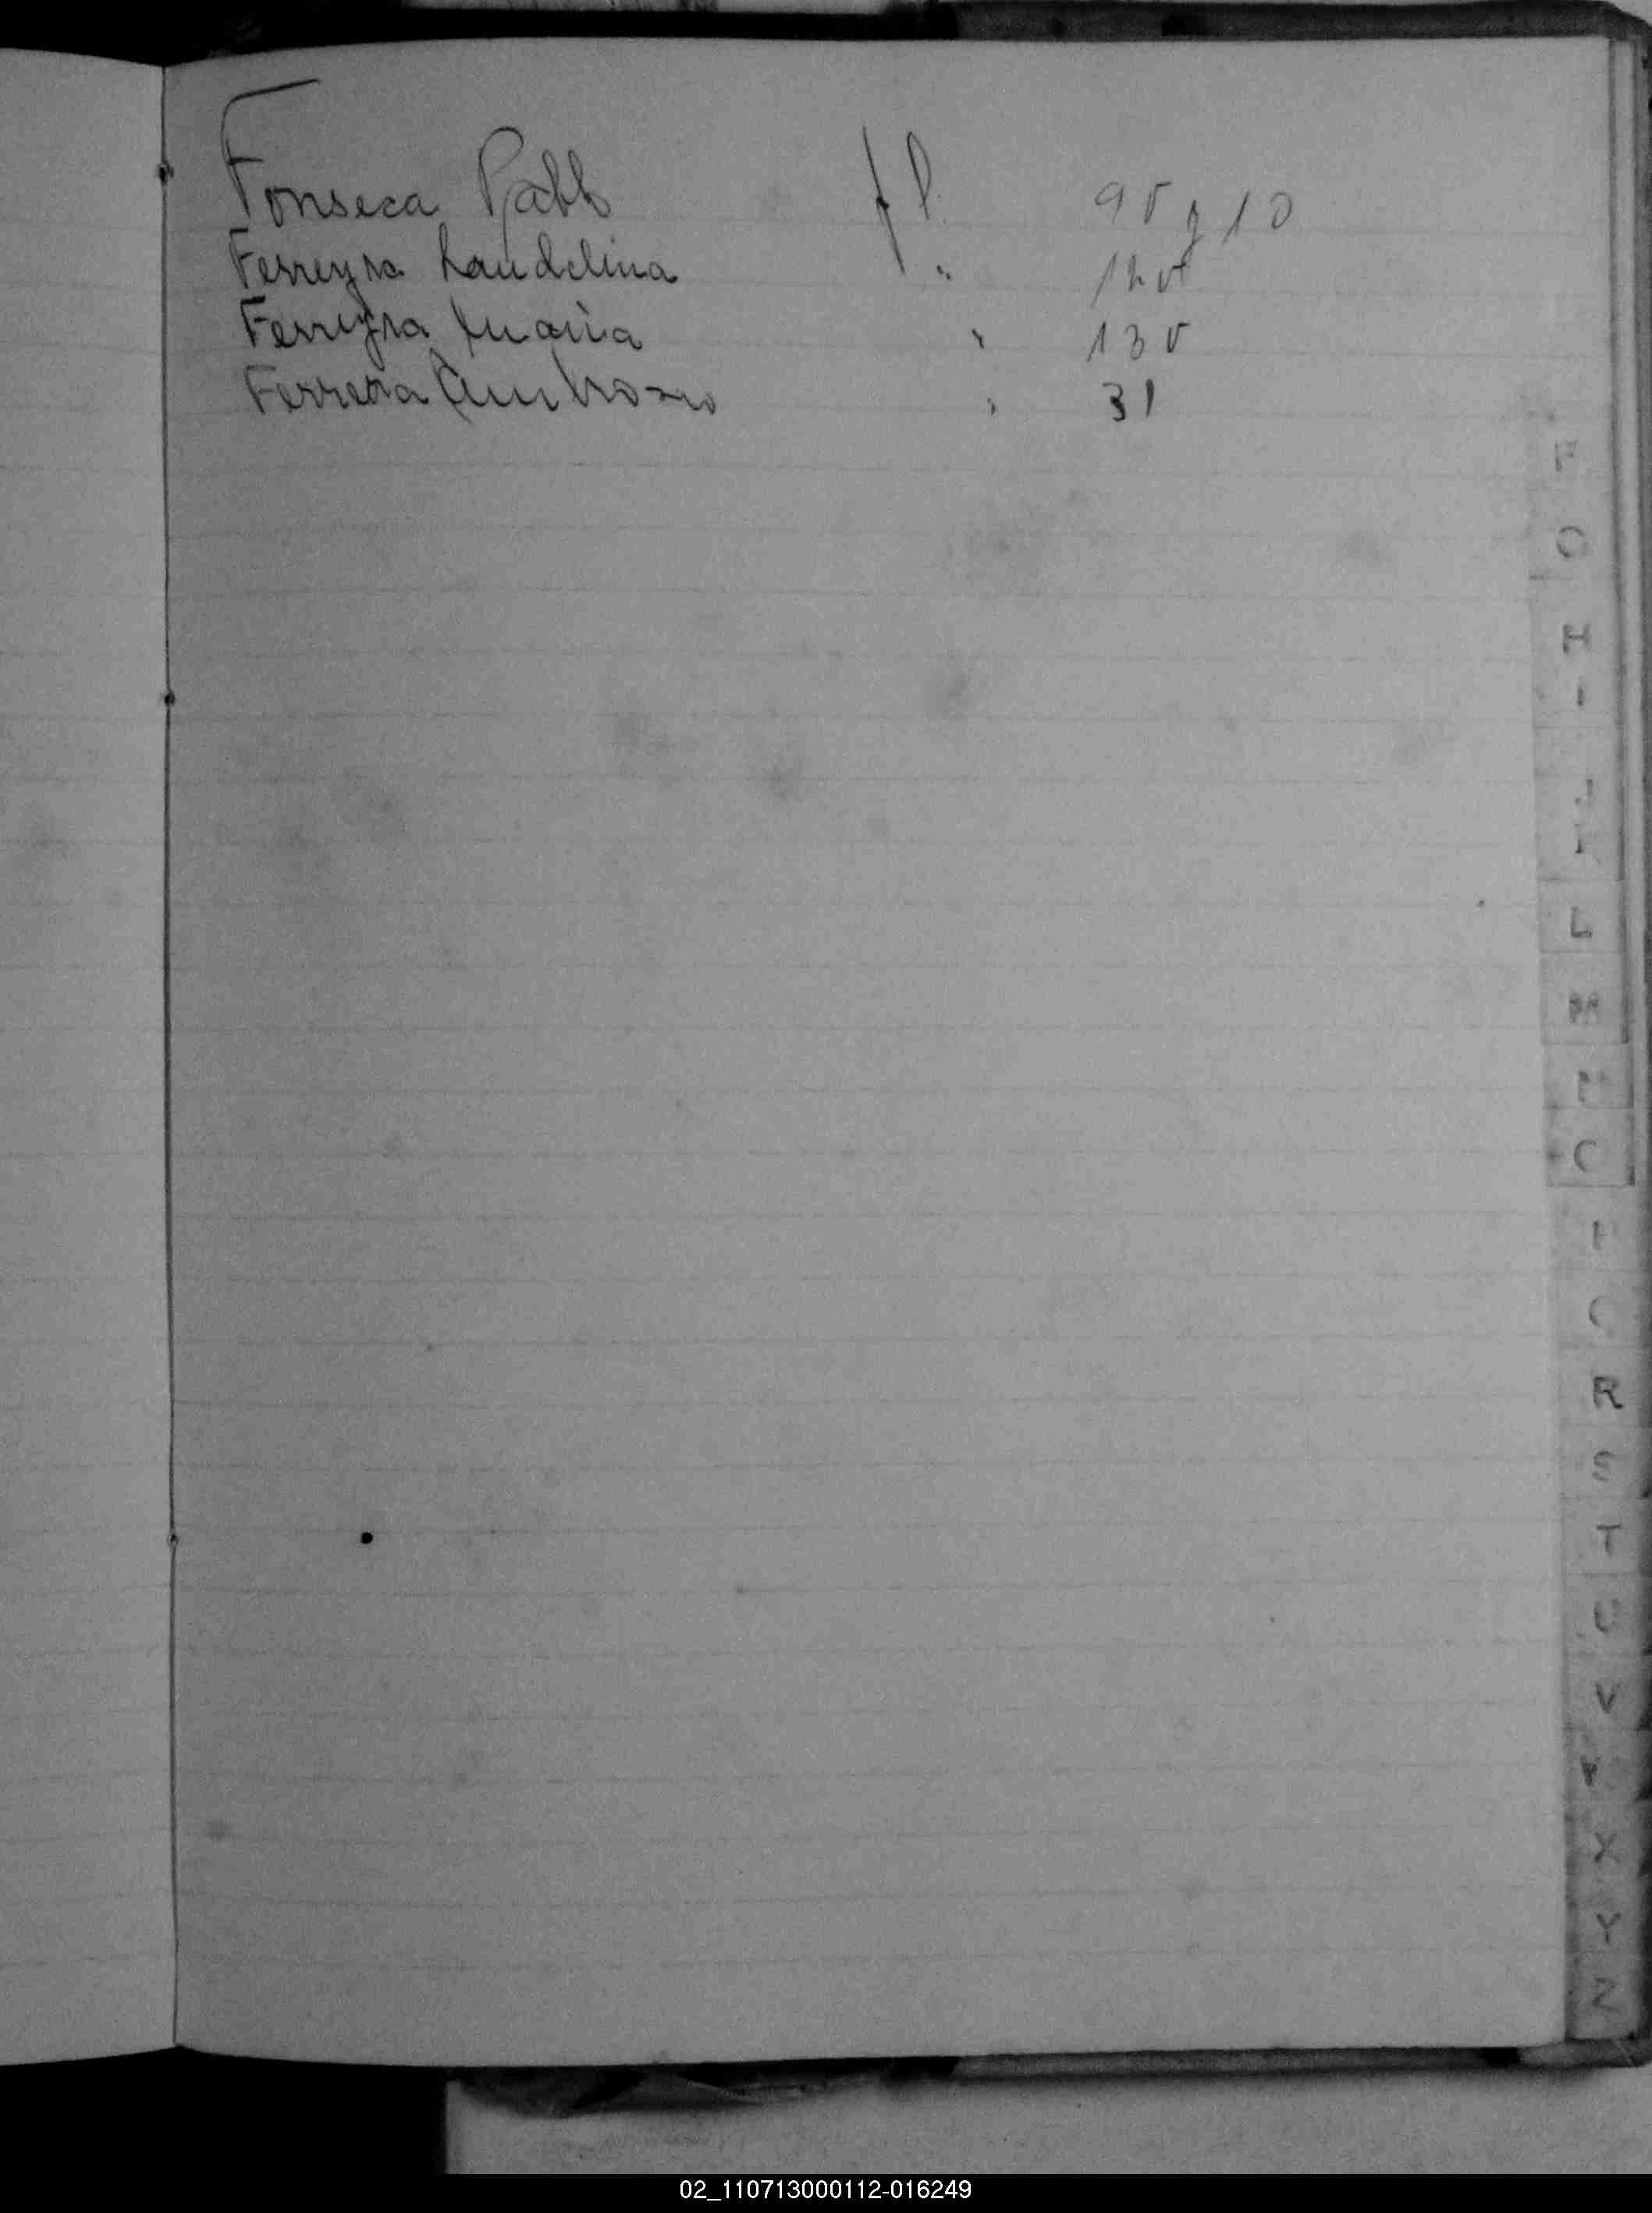 Fonseca Pablo fl. 9v y 10
Ferreyra Laudelina " 12v
Ferreyra Maria " 13v
Ferrera Ambrosio " 31
F
G
H
I
J
K
L
M
N
O
P
Q
R
S
T
U
V
X
Y
Z
02_110713000112-016249